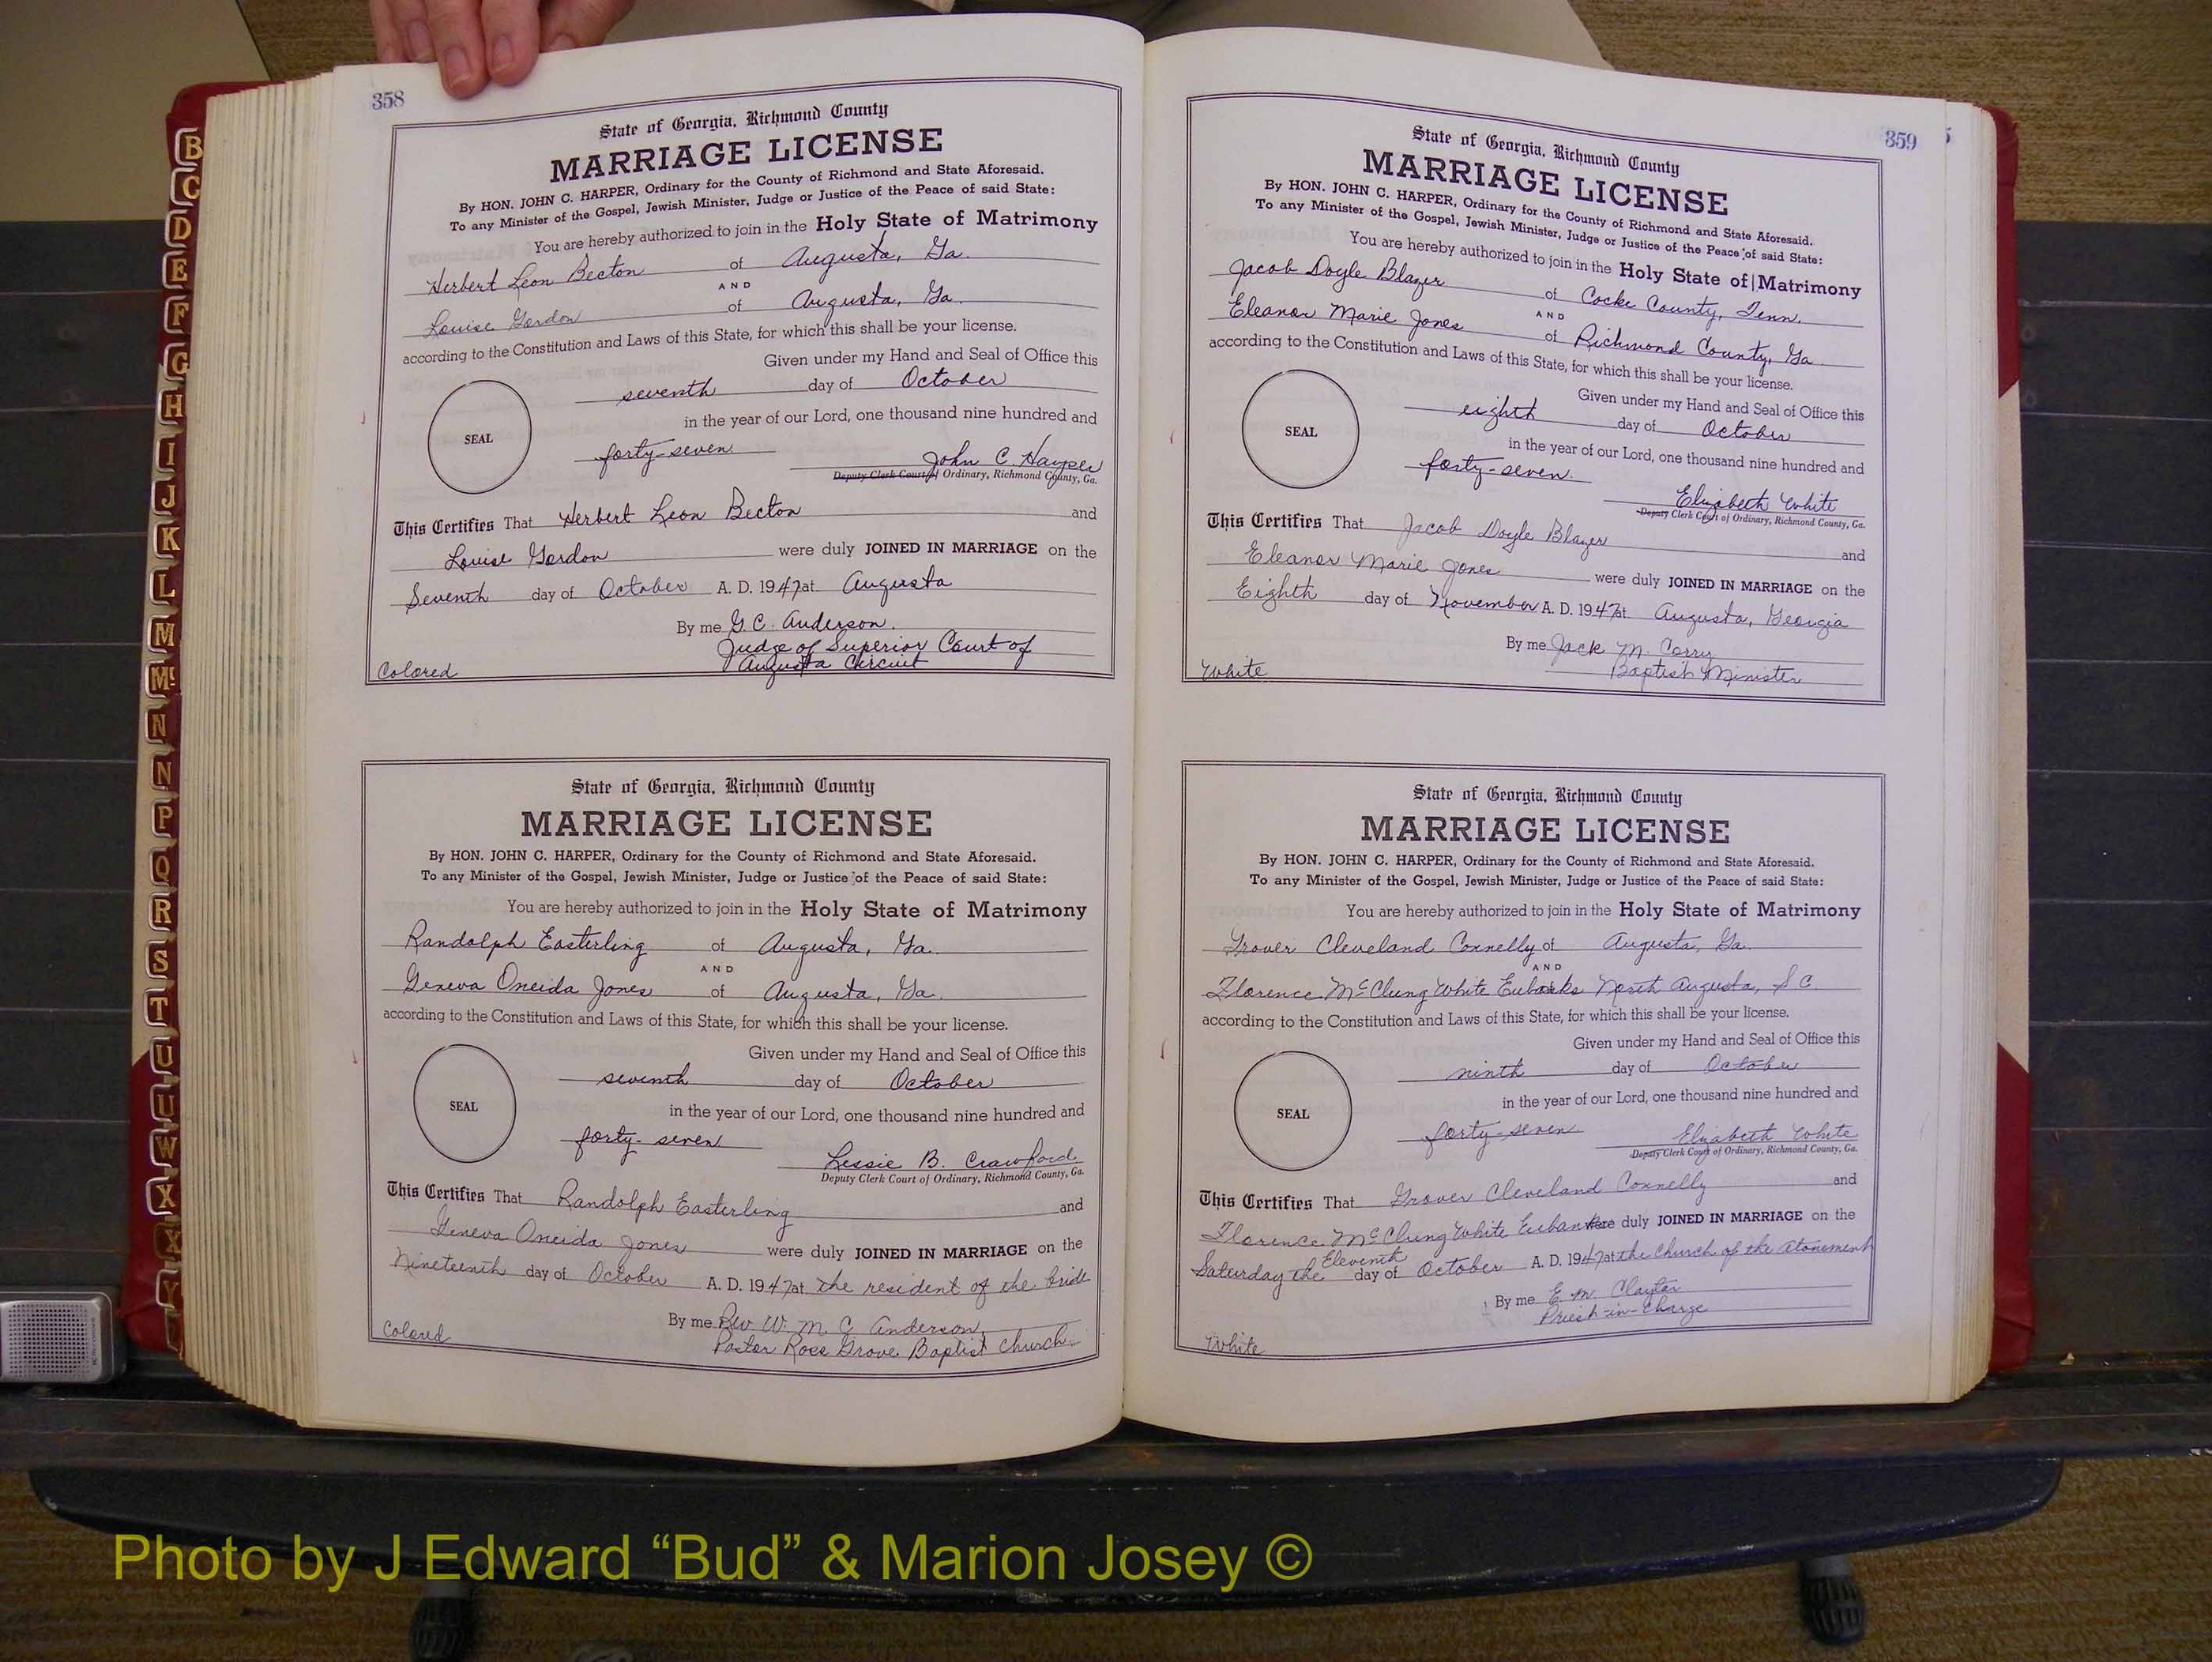 358
State of Georgia, Richmond County
MARRIAGE LICENSE
By HON. JOHN C. HARPER, Ordinary for the County of Richmond and State Aforesaid.
To any Minister of the Gospel, Jewish Minister, Judge or Justice of the Peace of said State:
You are hereby authorized to join in the Holy State of Matrimony
Herbert Leon Becton of Augusta, Ga.
AND
Louise Gordon of Augusta, Ga.
according to the Constitution and Laws of this State, for which this shall be your license.
Given under my Hand and Seal of Office this
seventh day of October
in the year of our Lord, one thousand nine hundred and
SEAL
forty-seven
John C. Harper
Deputy Clerk Court of Ordinary, Richmond County, Ga.
This Certifies That Herbert Leon Becton and
Louise Gordon were duly JOINED IN MARRIAGE on the
Seventh day of October A. D. 1947 at Augusta
By me G. C. Anderson.
Judge of Superior Court of
Augusta Circuit
Colored
State of Georgia, Richmond County
MARRIAGE LICENSE
By HON. JOHN C. HARPER, Ordinary for the County of Richmond and State Aforesaid.
To any Minister of the Gospel, Jewish Minister, Judge or Justice of the Peace of said State:
You are hereby authorized to join in the Holy State of Matrimony
Randolph Easterling of Augusta, Ga.
AND
Geneva Oneida Jones of Augusta, Ga.
according to the Constitution and Laws of this State, for which this shall be your license.
Given under my Hand and Seal of Office this
seventh day of October
SEAL
in the year of our Lord, one thousand nine hundred and
forty-seven
Lessie B. Crawford
Deputy Clerk Court of Ordinary, Richmond County, Ga.
This Certifies That Randolph Easterling and
Geneva Oneida Jones were duly JOINED IN MARRIAGE on the
Nineteenth day of October A. D. 1947 at the resident of the bride
By me Rev W. M. C Anderson
Pastor Rose Grove Baptist Church
Colored
359
State of Georgia, Richmond County
MARRIAGE LICENSE
By HON. JOHN C. HARPER, Ordinary for the County of Richmond and State Aforesaid.
To any Minister of the Gospel, Jewish Minister, Judge or Justice of the Peace of said State:
You are hereby authorized to join in the Holy State of Matrimony
Jacob Doyle Blazer of Cocke County, Tenn.
AND
Eleanor Marie Jones of Richmond County, Ga.
according to the Constitution and Laws of this State, for which this shall be your license.
Given under my Hand and Seal of Office this
eighth day of October
SEAL
in the year of our Lord, one thousand nine hundred and
forty-seven.
Elizabeth White
Deputy Clerk Court of Ordinary, Richmond County, Ga.
This Certifies That Jacob Doyle Blazer and
Eleanor Marie Jones were duly JOINED IN MARRIAGE on the
Eighth day of November A. D. 1947 at Augusta, Georgia
By me Jack M. Corry
Baptist Minister
White
State of Georgia, Richmond County
MARRIAGE LICENSE
By HON. JOHN C. HARPER, Ordinary for the County of Richmond and State Aforesaid.
To any Minister of the Gospel, Jewish Minister, Judge or Justice of the Peace of said State:
You are hereby authorized to join in the Holy State of Matrimony
Grover Cleveland Connelly of Augusta, Ga.
AND
Florence McClung White Eubanks North Augusta, S C.
according to the Constitution and Laws of this State, for which this shall be your license.
Given under my Hand and Seal of Office this
ninth day of October
in the year of our Lord, one thousand nine hundred and
SEAL
forty-seven
Elizabeth White
Deputy Clerk Court of Ordinary, Richmond County, Ga.
This Certifies That Grover Cleveland Connelly and
Florence McClung White Eubanks were duly JOINED IN MARRIAGE on the
Saturday the Eleventh day of October A. D. 1947 at the Church of the Atonement
By me E. M. Claytor
Priest-in-Charge
White
B
C
D
E
F
G
H
I
J
K
L
M
Mc
N
N
P
Q
R
S
T
U
U
W
X
X
Y
Photo by J Edward “Bud” & Marion Josey ©